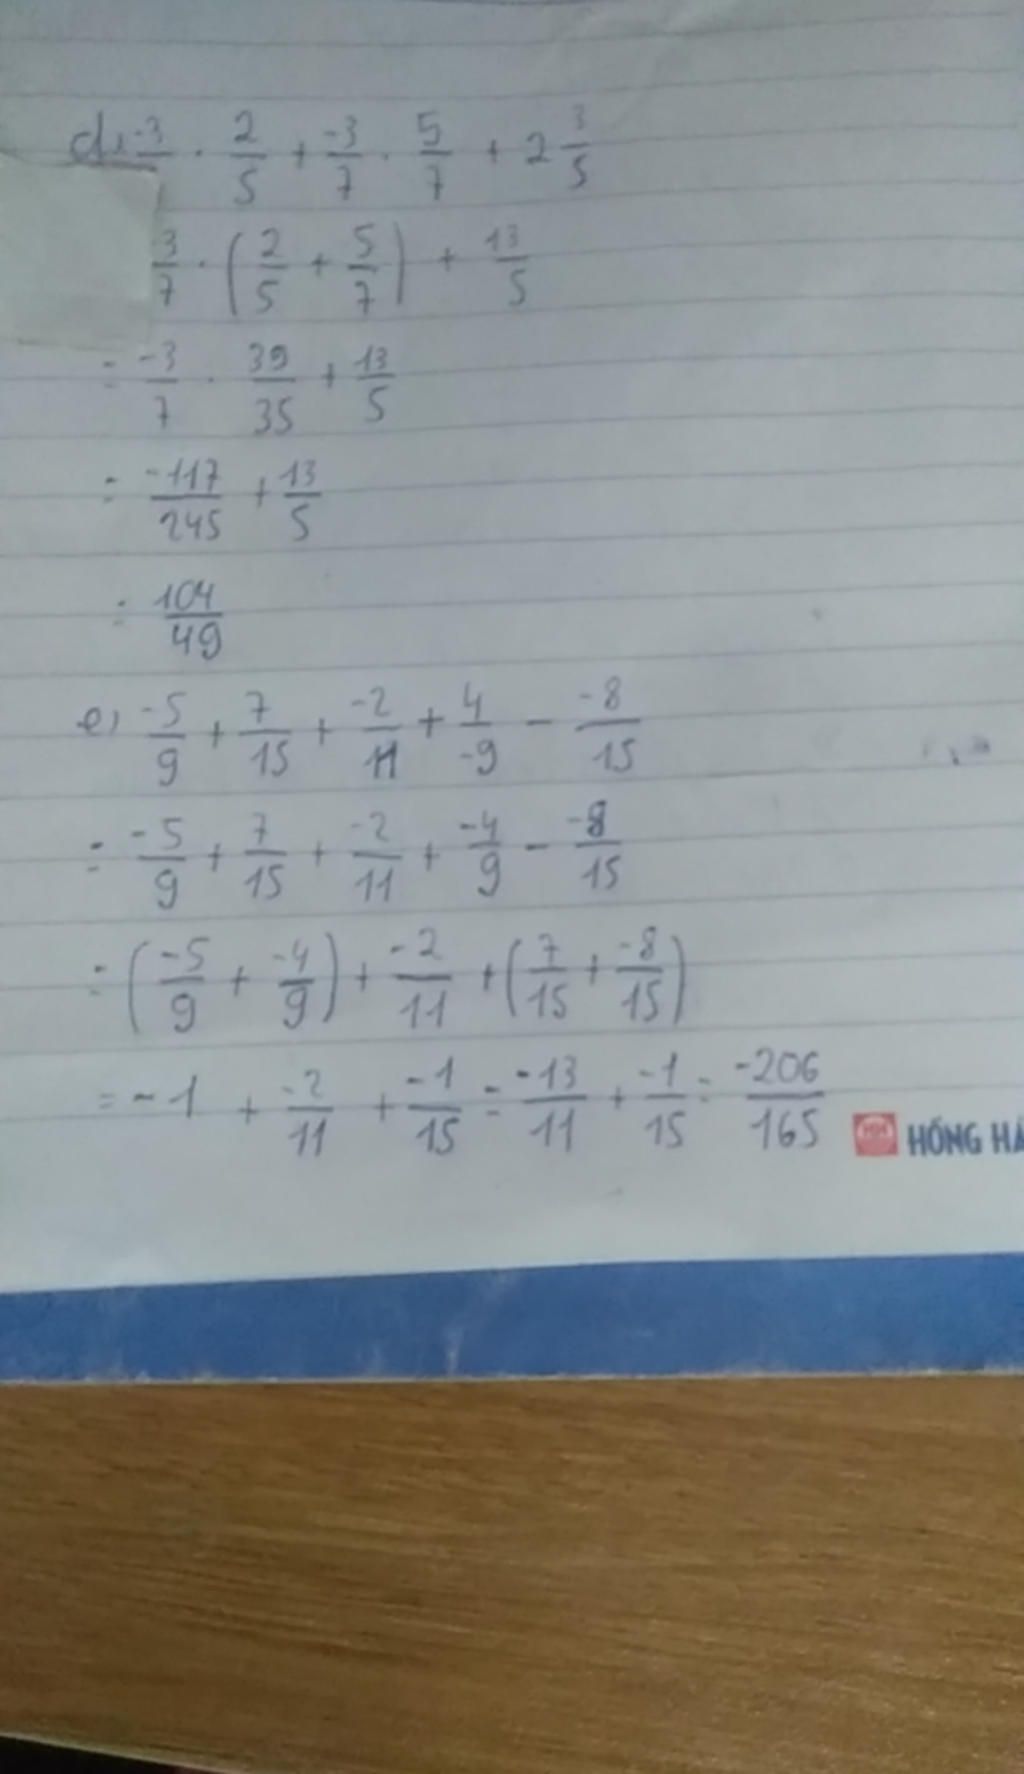 d, -3/ . 2/5 + -3/7 . 5/7 + 2 3/5
3/7 . (2/5 + 5/7) + 13/5
= -3/7 . 39/35 + 13/5
= -117/245 + 13/5
= 104/49
e, -5/9 + 7/15 + -2/11 + 4/-9 - -8/15
= -5/9 + 7/15 + -2/11 + -4/9 - -8/15
= (-5/9 + -4/9) + -2/11 + (7/15 + -8/15)
= -1 + -2/11 + -1/15 = -13/11 + -1/15 = -206/165
HỒNG HÀ